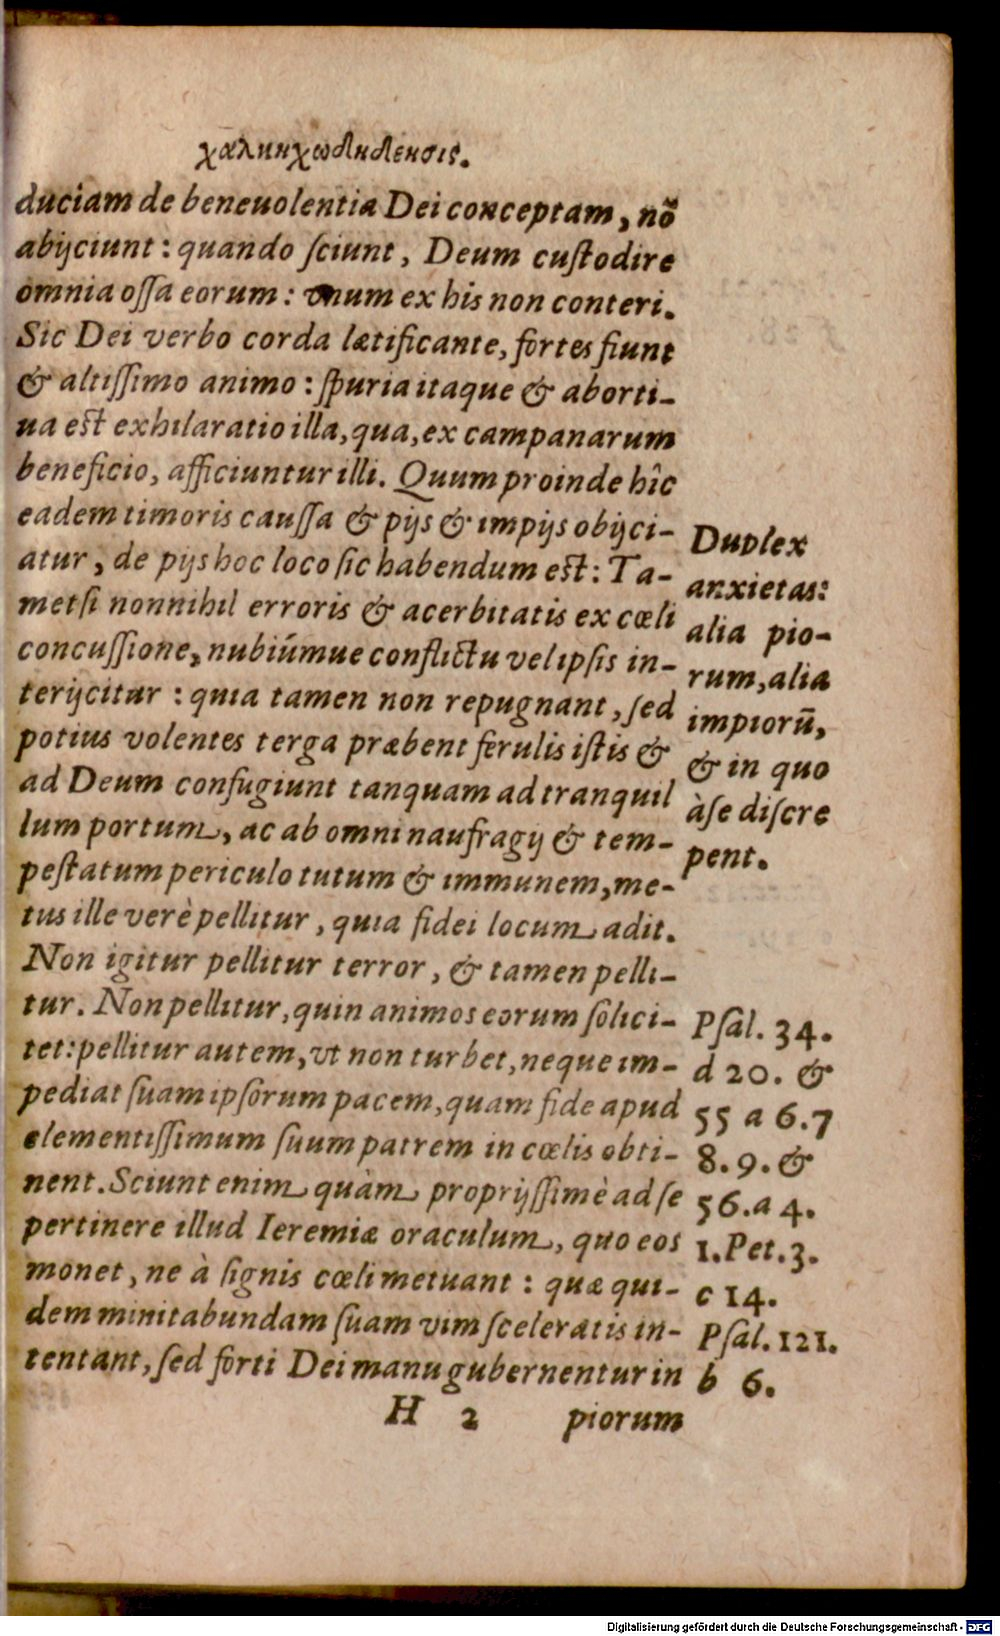 χαλκηχωδηδενσις.
duciam de beneuolentia Dei conceptam, nõ
abijciunt: quando ſciunt, Deum cuſtodire
omnia oſſa eorum: vnum ex his non conteri.
Sic Dei verbo corda lætificante, fortes fiunt
& altiſſimo animo: ſpuria itaque & aborti-
ua eſt exhilaratio illa, qua, ex campanarum
beneficio, afficiuntur illi. Quum proinde hîc
eadem timoris cauſſa & pijs & impijs obijci-
atur, de pijs hoc loco ſic habendum eſt: Ta-
metſi nonnihil erroris & acerbitatis ex cœli
concuſſione, nubiúmue conflictu vel ipſis in-
terijcitur: quia tamen non repugnant, ſed
potius volentes terga præbent ferulis iſtis &
ad Deum confugiunt tanquam ad tranquil
lum portum, ac ab omni naufragij & tem-
peſtatum periculo tutum & immunem, me-
tus ille verè pellitur, quia fidei locum adit.
Non igitur pellitur terror, & tamen pelli-
tur. Non pellitur, quin animos eorum ſolici-
tet: pellitur autem, vt non turbet, neque im-
pediat ſuam ipſorum pacem, quam fide apud
clementiſſimum ſuum patrem in cœlis obti-
nent. Sciunt enim quàm proprijſſimè ad ſe
pertinere illud Ieremiæ oraculum, quo eos
monet, ne à ſignis cœli metuant: quæ qui-
dem minitabundam ſuam vim ſceleratis in-
tentant, ſed forti Dei manu gubernentur in
H 2 piorum
Duplex
anxietas:
alia pio-
rum, alia
impiorū,
& in quo
à ſe diſcre
pent.
Pſal. 34.
d 20. &
55 a 6. 7
8. 9. &
56. a 4.
1. Pet. 3.
c 14.
Pſal. 121.
b 6.
Digitalisierung gefördert durch die Deutsche Forschungsgemeinschaft - DFG